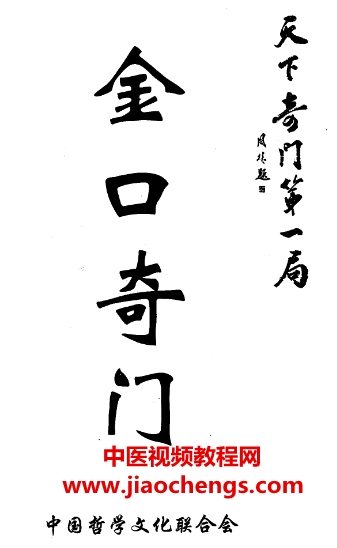 天下奇门第一局
金口奇门
中医视频教程网
www.jiaochengs.com
中国哲学文化联合会